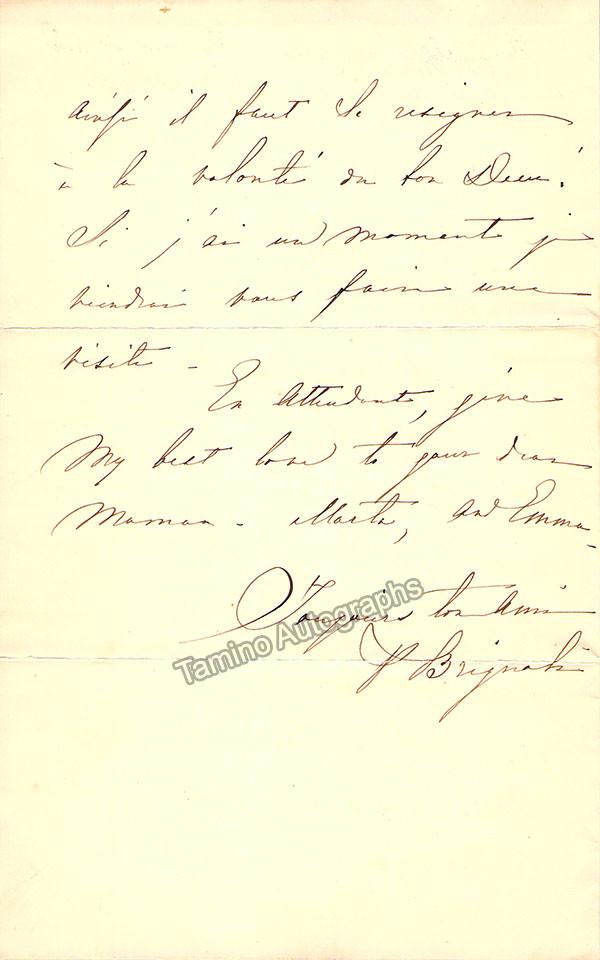 ainsi il faut se resigner
à la volonté du bon Dieu!
Si j'ai un moment je
viendrai vous faire une
visite -
En attendant, give
My best love to your dear
Maman - Marta, and Emma -
Toujours ton Ami
P Brignoli
Tamino Autographs